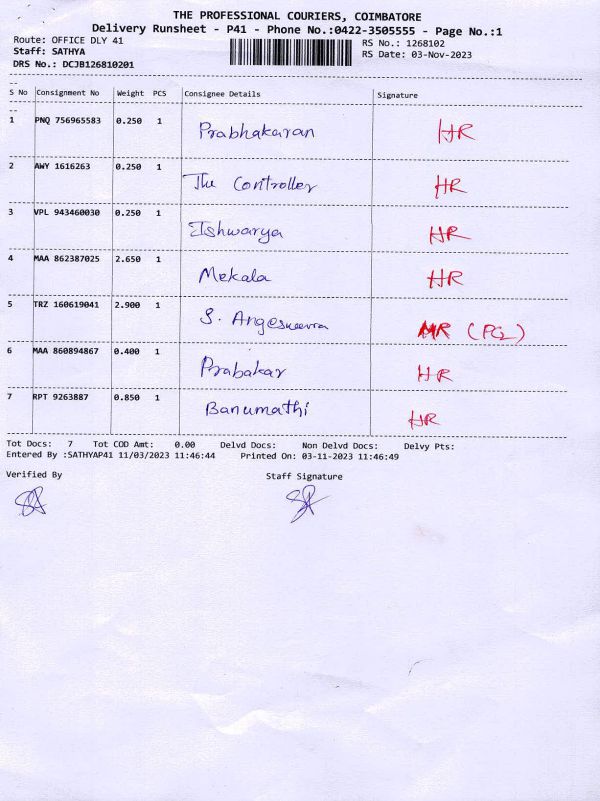 THE PROFESSIONAL COURIERS, COIMBATORE
Delivery Runsheet - P41 - Phone No.:0422-3505555 - Page No.:1
Route: OFFICE DLY 41 RS No.: 1268102
Staff: SATHYA RS Date: 03-Nov-2023
DRS No.: DCJB126810201
S No Consignment No Weight PCS Consignee Details Signature
1 PNQ 756965583 0.250 1 Prabhakaran HR
2 AWY 1616263 0.250 1 The Controller HR
3 VPL 943460030 0.250 1 Ishwarya HR
4 MAA 862387025 2.650 1 Mekala HR
5 TRZ 160619041 2.900 1 S. MR
6 MAA 860894867 0.400 1 Prabakar HR
7 RPT 9263887 0.850 1 Banumathi HR
Tot Docs: 7 Tot COD Amt: 0.00 Delvd Docs: Non Delvd Docs: Delvy Pts:
Entered By :SATHYAP41 11/03/2023 11:46:44 Printed On: 03-11-2023 11:46:49
Verified By Staff Signature